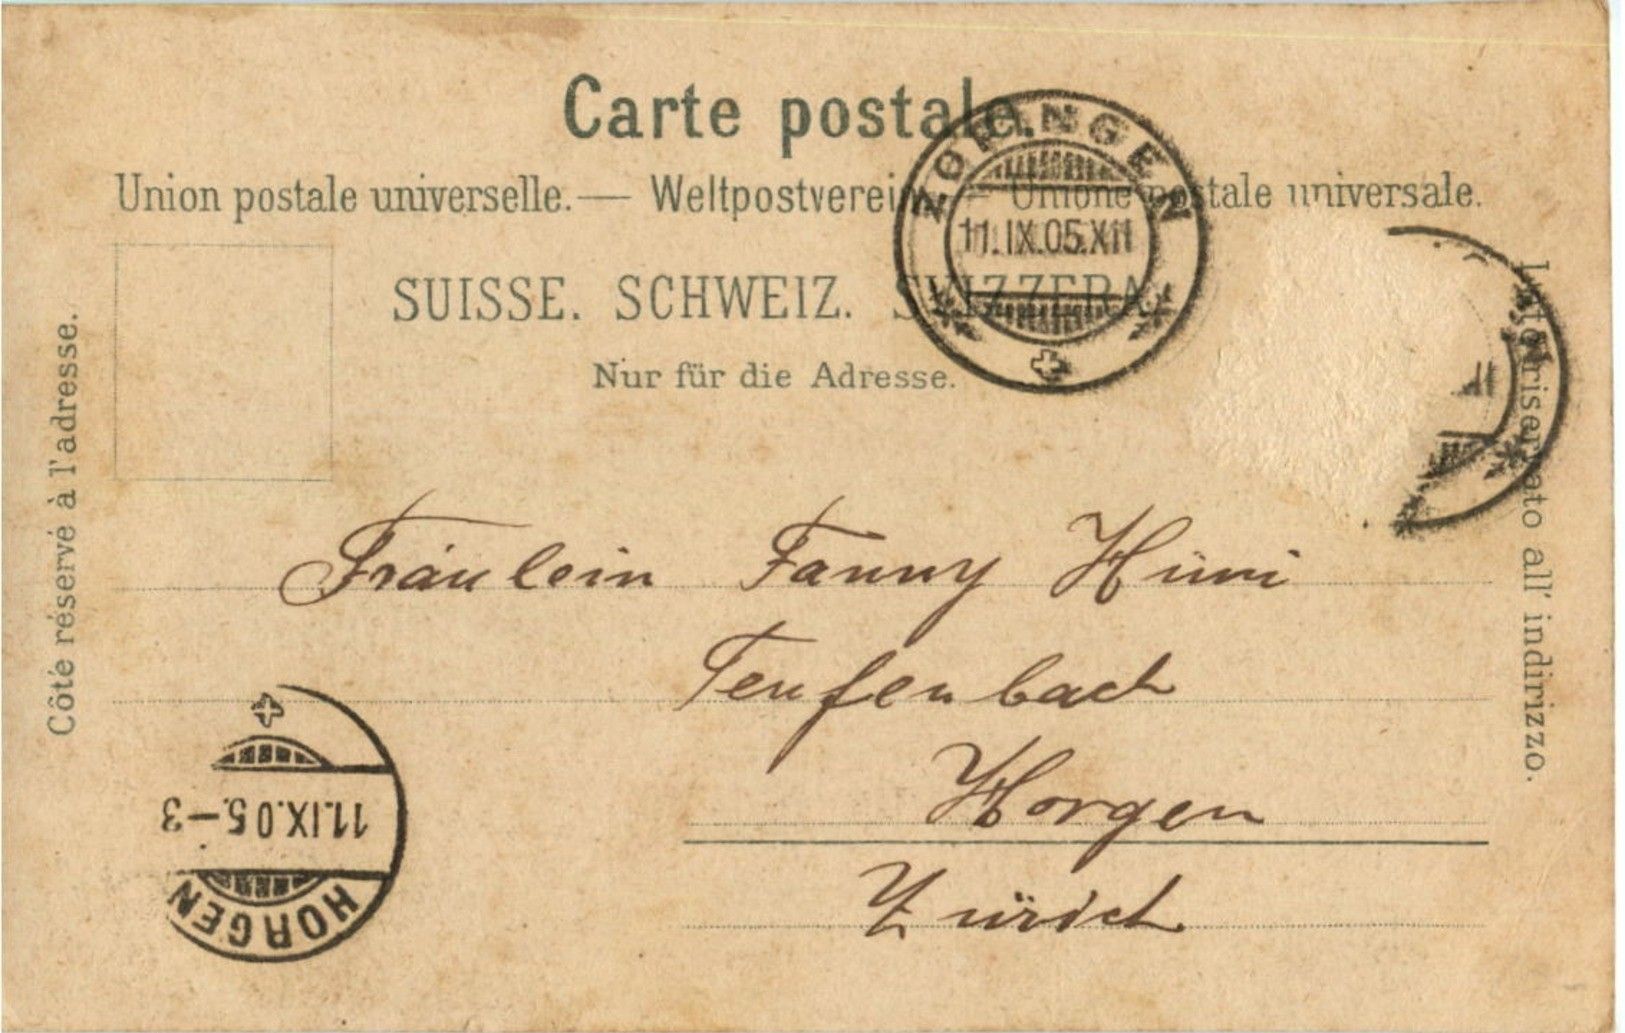 Carte postale.
Union postale universelle. — Weltpostverein. — Unione postale universale.
SUISSE. SCHWEIZ. SVIZZERA.
Nur für die Adresse.
Côté réservé à l'adresse.
Lato riservato all' indirizzo.
ZOFINGEN
11.IX.05.XII
Fräulein Fanny Hüni
Teufenbach
Horgen
Zürich
11.IX.05.-3
HORGEN